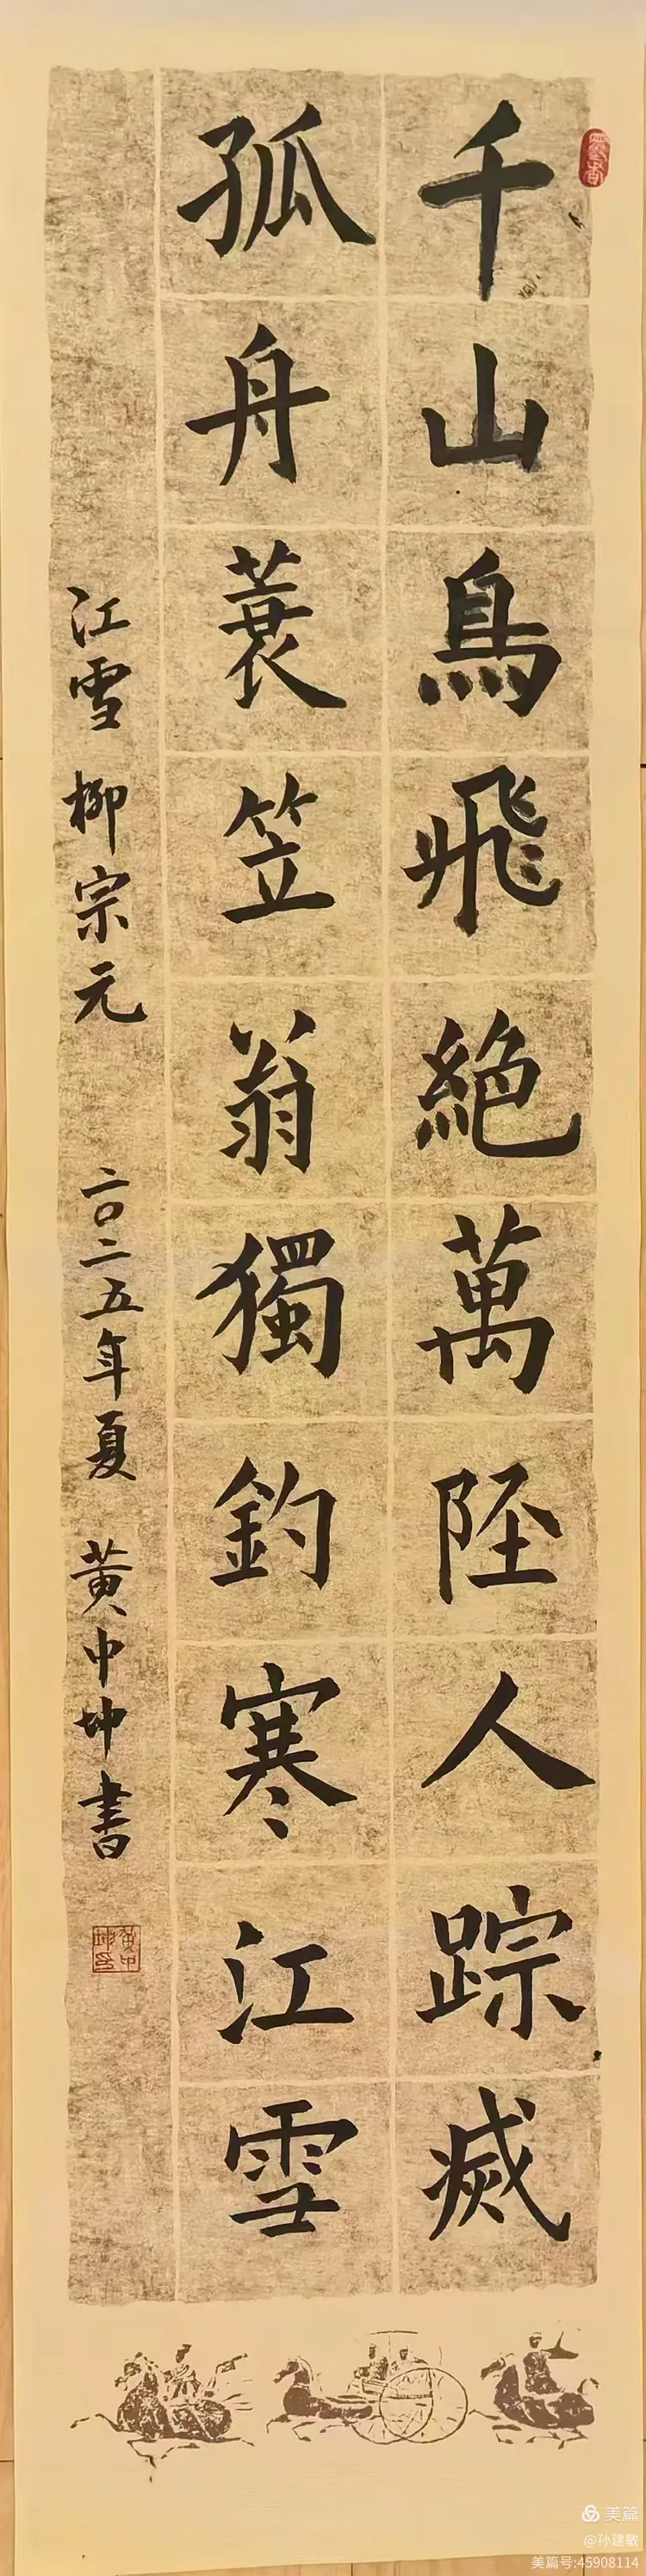 千山鳥飛絶萬陘人踪滅
孤舟蓑笠翁獨釣寒江雪
江雪 柳宗元 二〇二五年夏 黄中坤書
黄中坤印
美篇
@孙建敏
美篇号:45908114